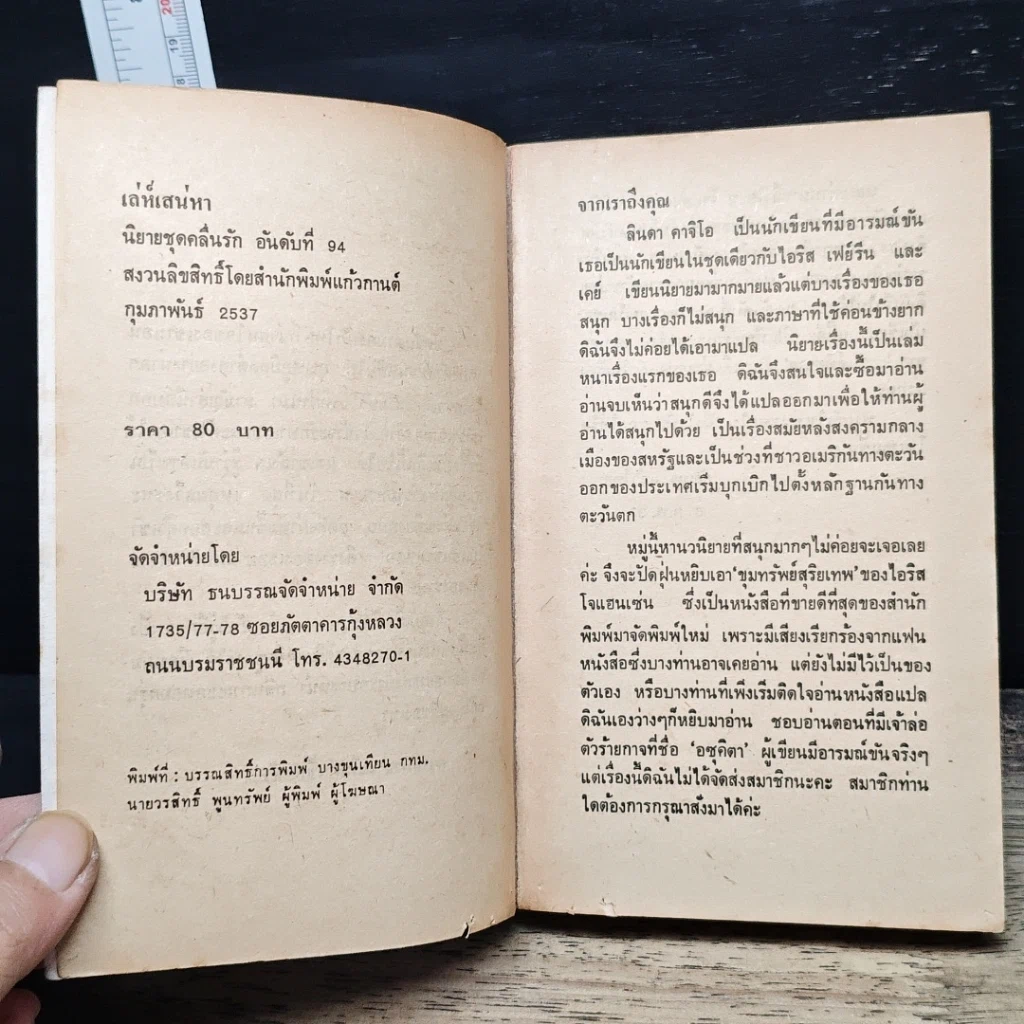 เล่ห์เสน่หา
นิยายชุดคลื่นรัก อันดับที่ 94
สงวนลิขสิทธิ์โดยสำนักพิมพ์แก้วกานต์
กุมภาพันธ์ 2537
ราคา 80 บาท
จัดจำหน่ายโดย
บริษัท ธนบรรณจัดจำหน่าย จำกัด
1735/77-78 ซอยภัตตาคารกุ้งหลวง
ถนนบรมราชชนนี โทร. 4348270-1
พิมพ์ที่ : บรรณสิทธิ์การพิมพ์ บางขุนเทียน กทม.
นายวรสิทธิ์ พูนทรัพย์ ผู้พิมพ์ ผู้โฆษณา
จากเราถึงคุณ
ลินดา คาจิโอ เป็นนักเขียนที่มีอารมณ์ขัน
เธอเป็นนักเขียนในชุดเดียวกับไอริส เฟย์รีน และ
เคย์ เขียนนิยายมามากมายแล้วแต่บางเรื่องของเธอ
สนุก บางเรื่องก็ไม่สนุก และภาษาที่ใช้ค่อนข้างยาก
ดิฉันจึงไม่ค่อยได้เอามาแปล นิยายเรื่องนี้เป็นเล่ม
หนาเรื่องแรกของเธอ ดิฉันจึงสนใจและซื้อมาอ่าน
อ่านจบเห็นว่าสนุกดีจึงได้แปลออกมาเพื่อให้ท่านผู้
อ่านได้สนุกไปด้วย เป็นเรื่องสมัยหลังสงครามกลาง
เมืองของสหรัฐและเป็นช่วงที่ชาวอเมริกันทางตะวัน
ออกของประเทศเริ่มบุกเบิกไปตั้งหลักฐานกันทาง
ตะวันตก
หมู่นี้หานวนิยายที่สนุกมากๆไม่ค่อยจะเจอเลย
ค่ะ จึงจะปัดฝุ่นหยิบเอา ‘ขุมทรัพย์สุริยเทพ’ ของไอริส
โจแฮนเซ่น ซึ่งเป็นหนังสือที่ขายดีที่สุดของสำนัก
พิมพ์มาจัดพิมพ์ใหม่ เพราะมีเสียงเรียกร้องจากแฟน
หนังสือซึ่งบางท่านอาจเคยอ่าน แต่ยังไม่มีไว้เป็นของ
ตัวเอง หรือบางท่านที่เพิ่งเริ่มติดใจอ่านหนังสือแปล
ดิฉันเองว่างๆก็หยิบมาอ่าน ชอบอ่านตอนที่มีเจ้าล่อ
ตัวร้ายกาจที่ชื่อ ‘อซุคิตา’ ผู้เขียนมีอารมณ์ขันจริงๆ
แต่เรื่องนี้ดิฉันไม่ได้จัดส่งสมาชิกนะคะ สมาชิกท่าน
ใดต้องการกรุณาสั่งมาได้ค่ะ